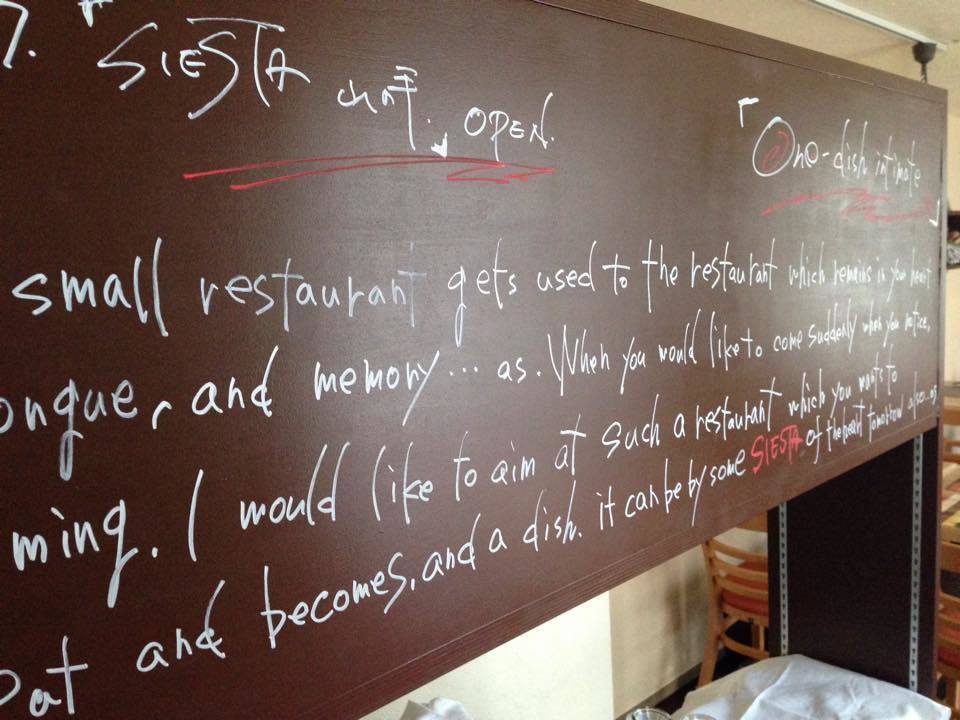 7. 「SIESTA 山の手」 OPEN.
「One-dish intimate」
small restaurant gets used to the restaurant which remains in your heart
ongue, and memory... as. When you would like to come suddenly when you notice,
ming. I would like to aim at such a restaurant which you wants to
oat and becomes, and a dish. it can be by some SIESTA of the heart tomorrow also...